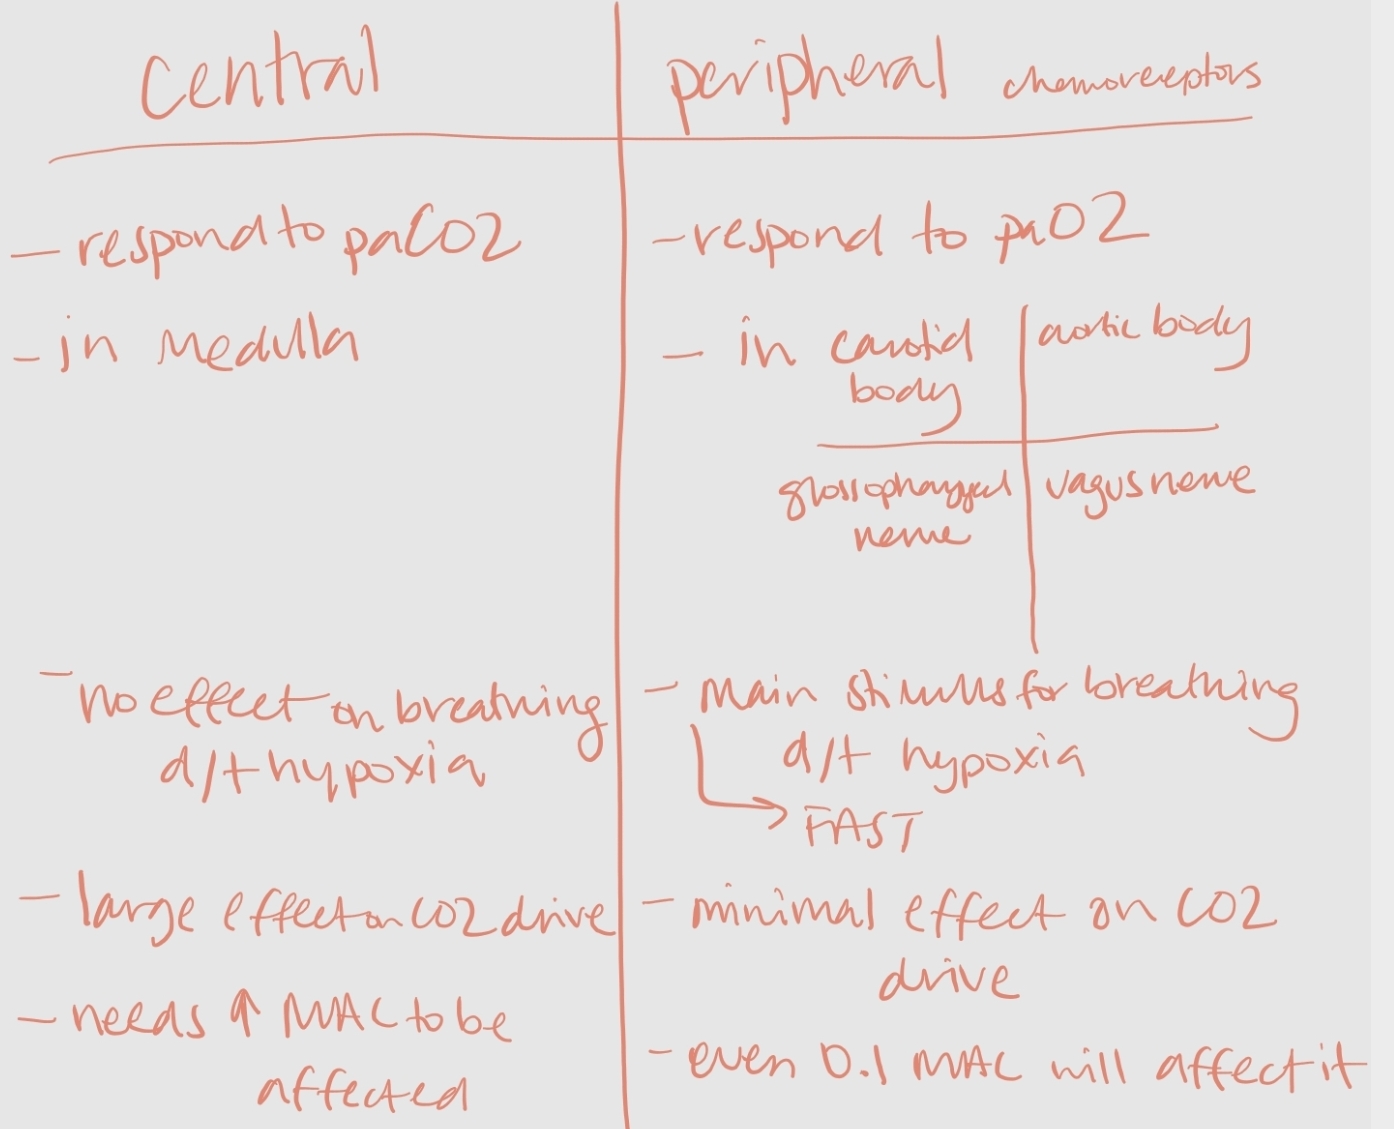 central
peripheral chemoreceptors
- respond to paCO2
- in medulla
- no effect on breathing
d/t hypoxia
- large effect on CO2 drive
- needs ↑ MAC to be
affected
- respond to paO2
- in carotid
body
aortic body
glossopharyngeal
nerve
vagus nerve
- main stimulus for breathing
d/t hypoxia
→ FAST
- minimal effect on CO2
drive
- even 0.1 MAC will affect it